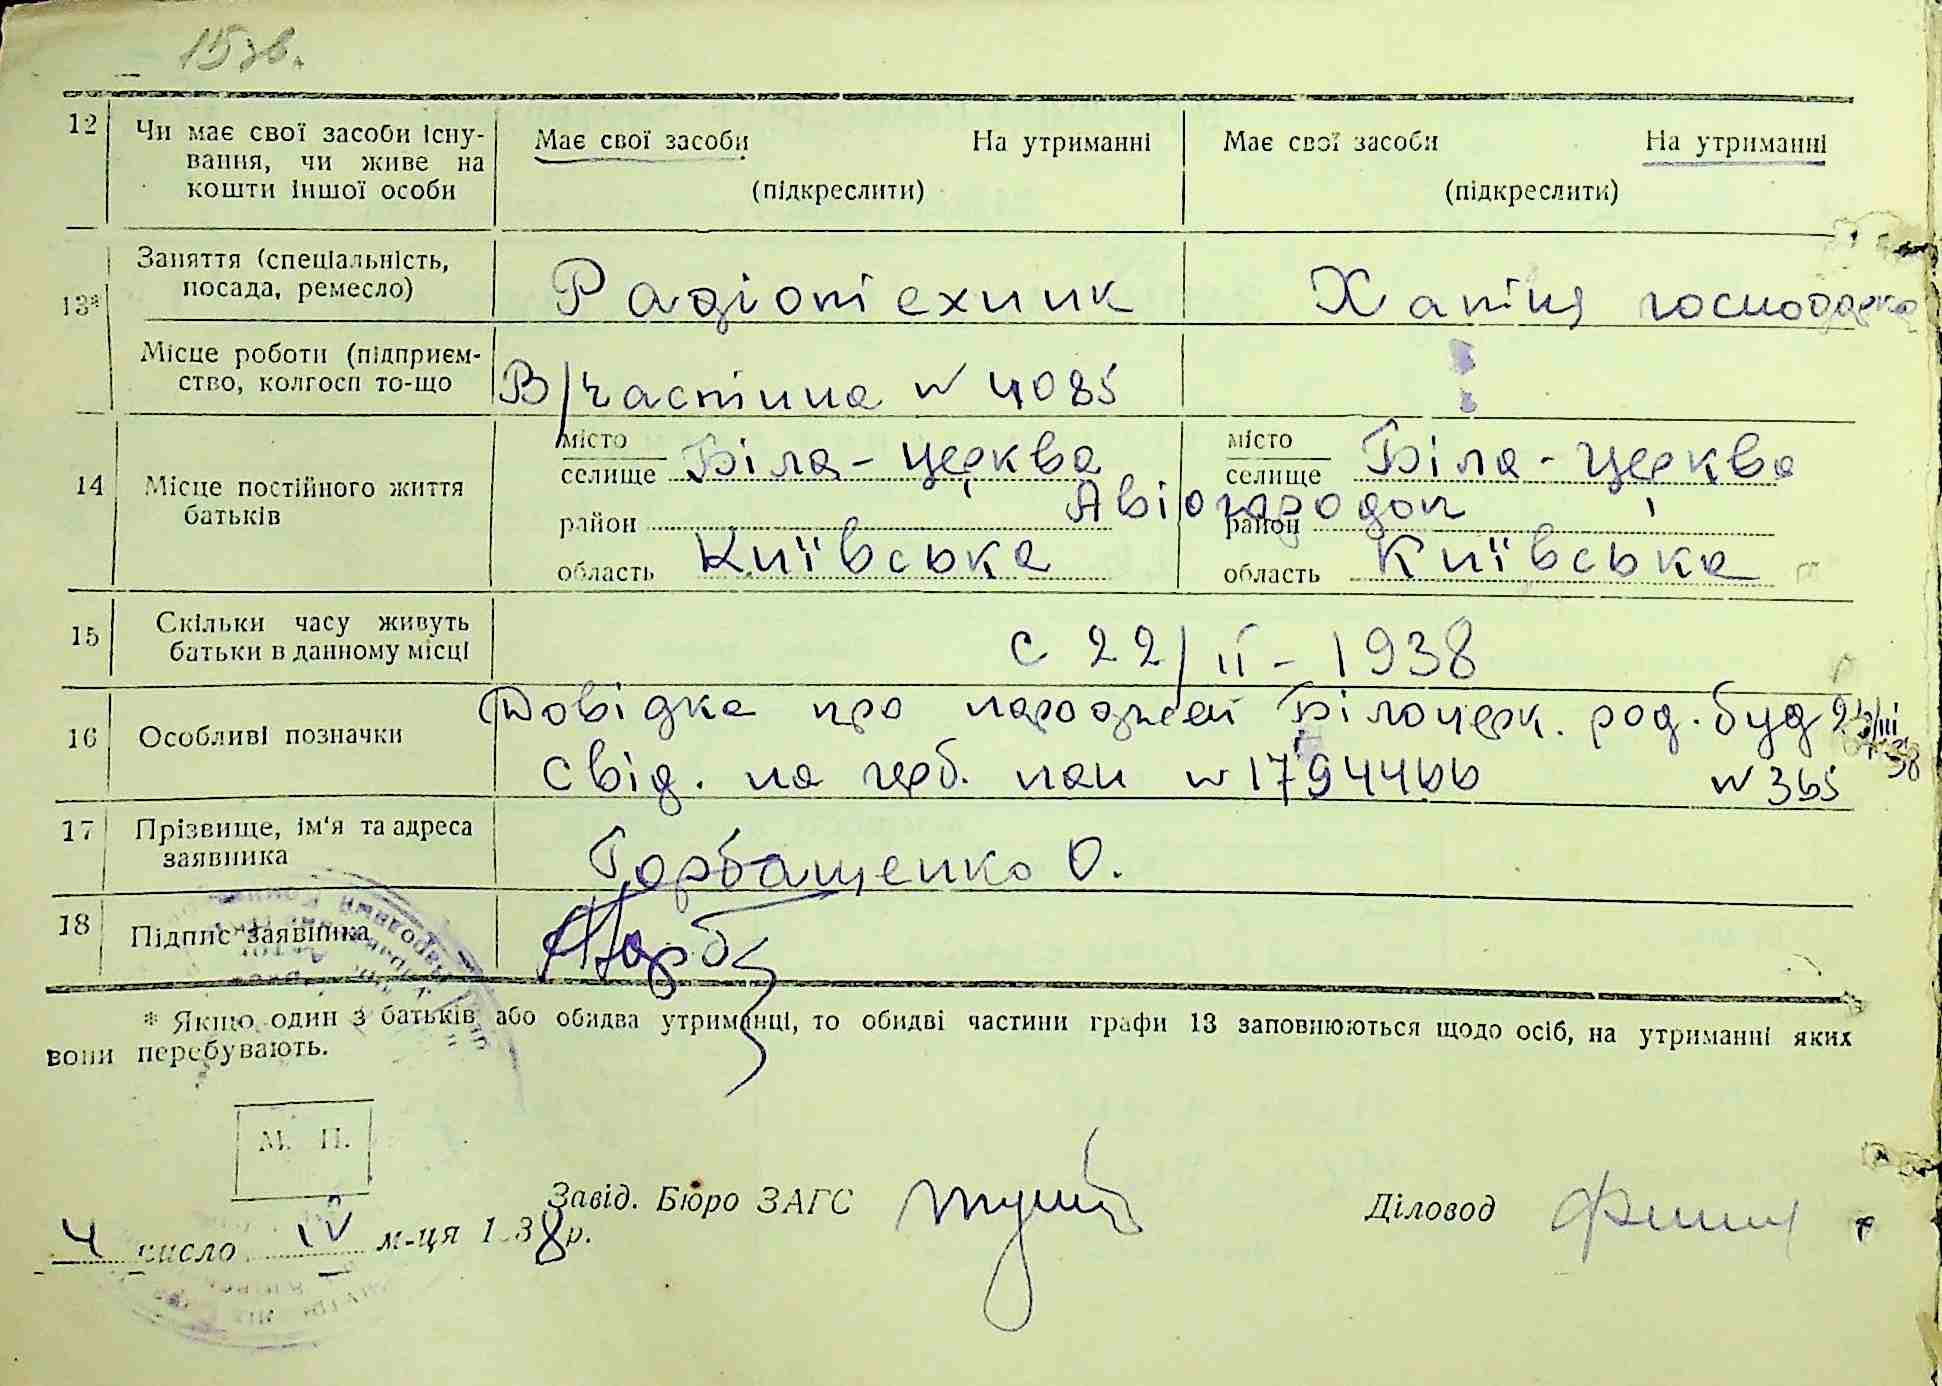 15зв.
12 Чи має свої засоби існу-
вання, чи живе на
кошти іншої особи
Має свої засоби На утриманні
(підкреслити)
Має свої засоби На утриманні
(підкреслити)
13* Заняття (спеціальність,
посада, ремесло)
Радіотехник
Хатня господарка
Місце роботи (підприєм-
ство, колгосп то-що
В/частина N 4085
14 Місце постійного життя
батьків
місто
селище Біла-церква
район Авіогородок
область Київська
місто
селище Біла-церква
район
область Київська
15 Скільки часу живуть
батьки в данному місці
с 22/ІІ - 1938
16 Особливі позначки
Довідка про народжен Білоцерк. род. буд
свід. на герб. пап N 1794466 N 365
17 Прізвище, ім'я та адреса
заявника
Горбащенко О.
18 Підпис заявника
Горб
* Якщо один з батьків або обидва утриманці, то обидві частини графи 13 заповнюються щодо осіб, на утриманні яких
вони перебувають.
М. П.
Завід. Бюро ЗАГС
Діловод
4 число IV м-ця 1938р.